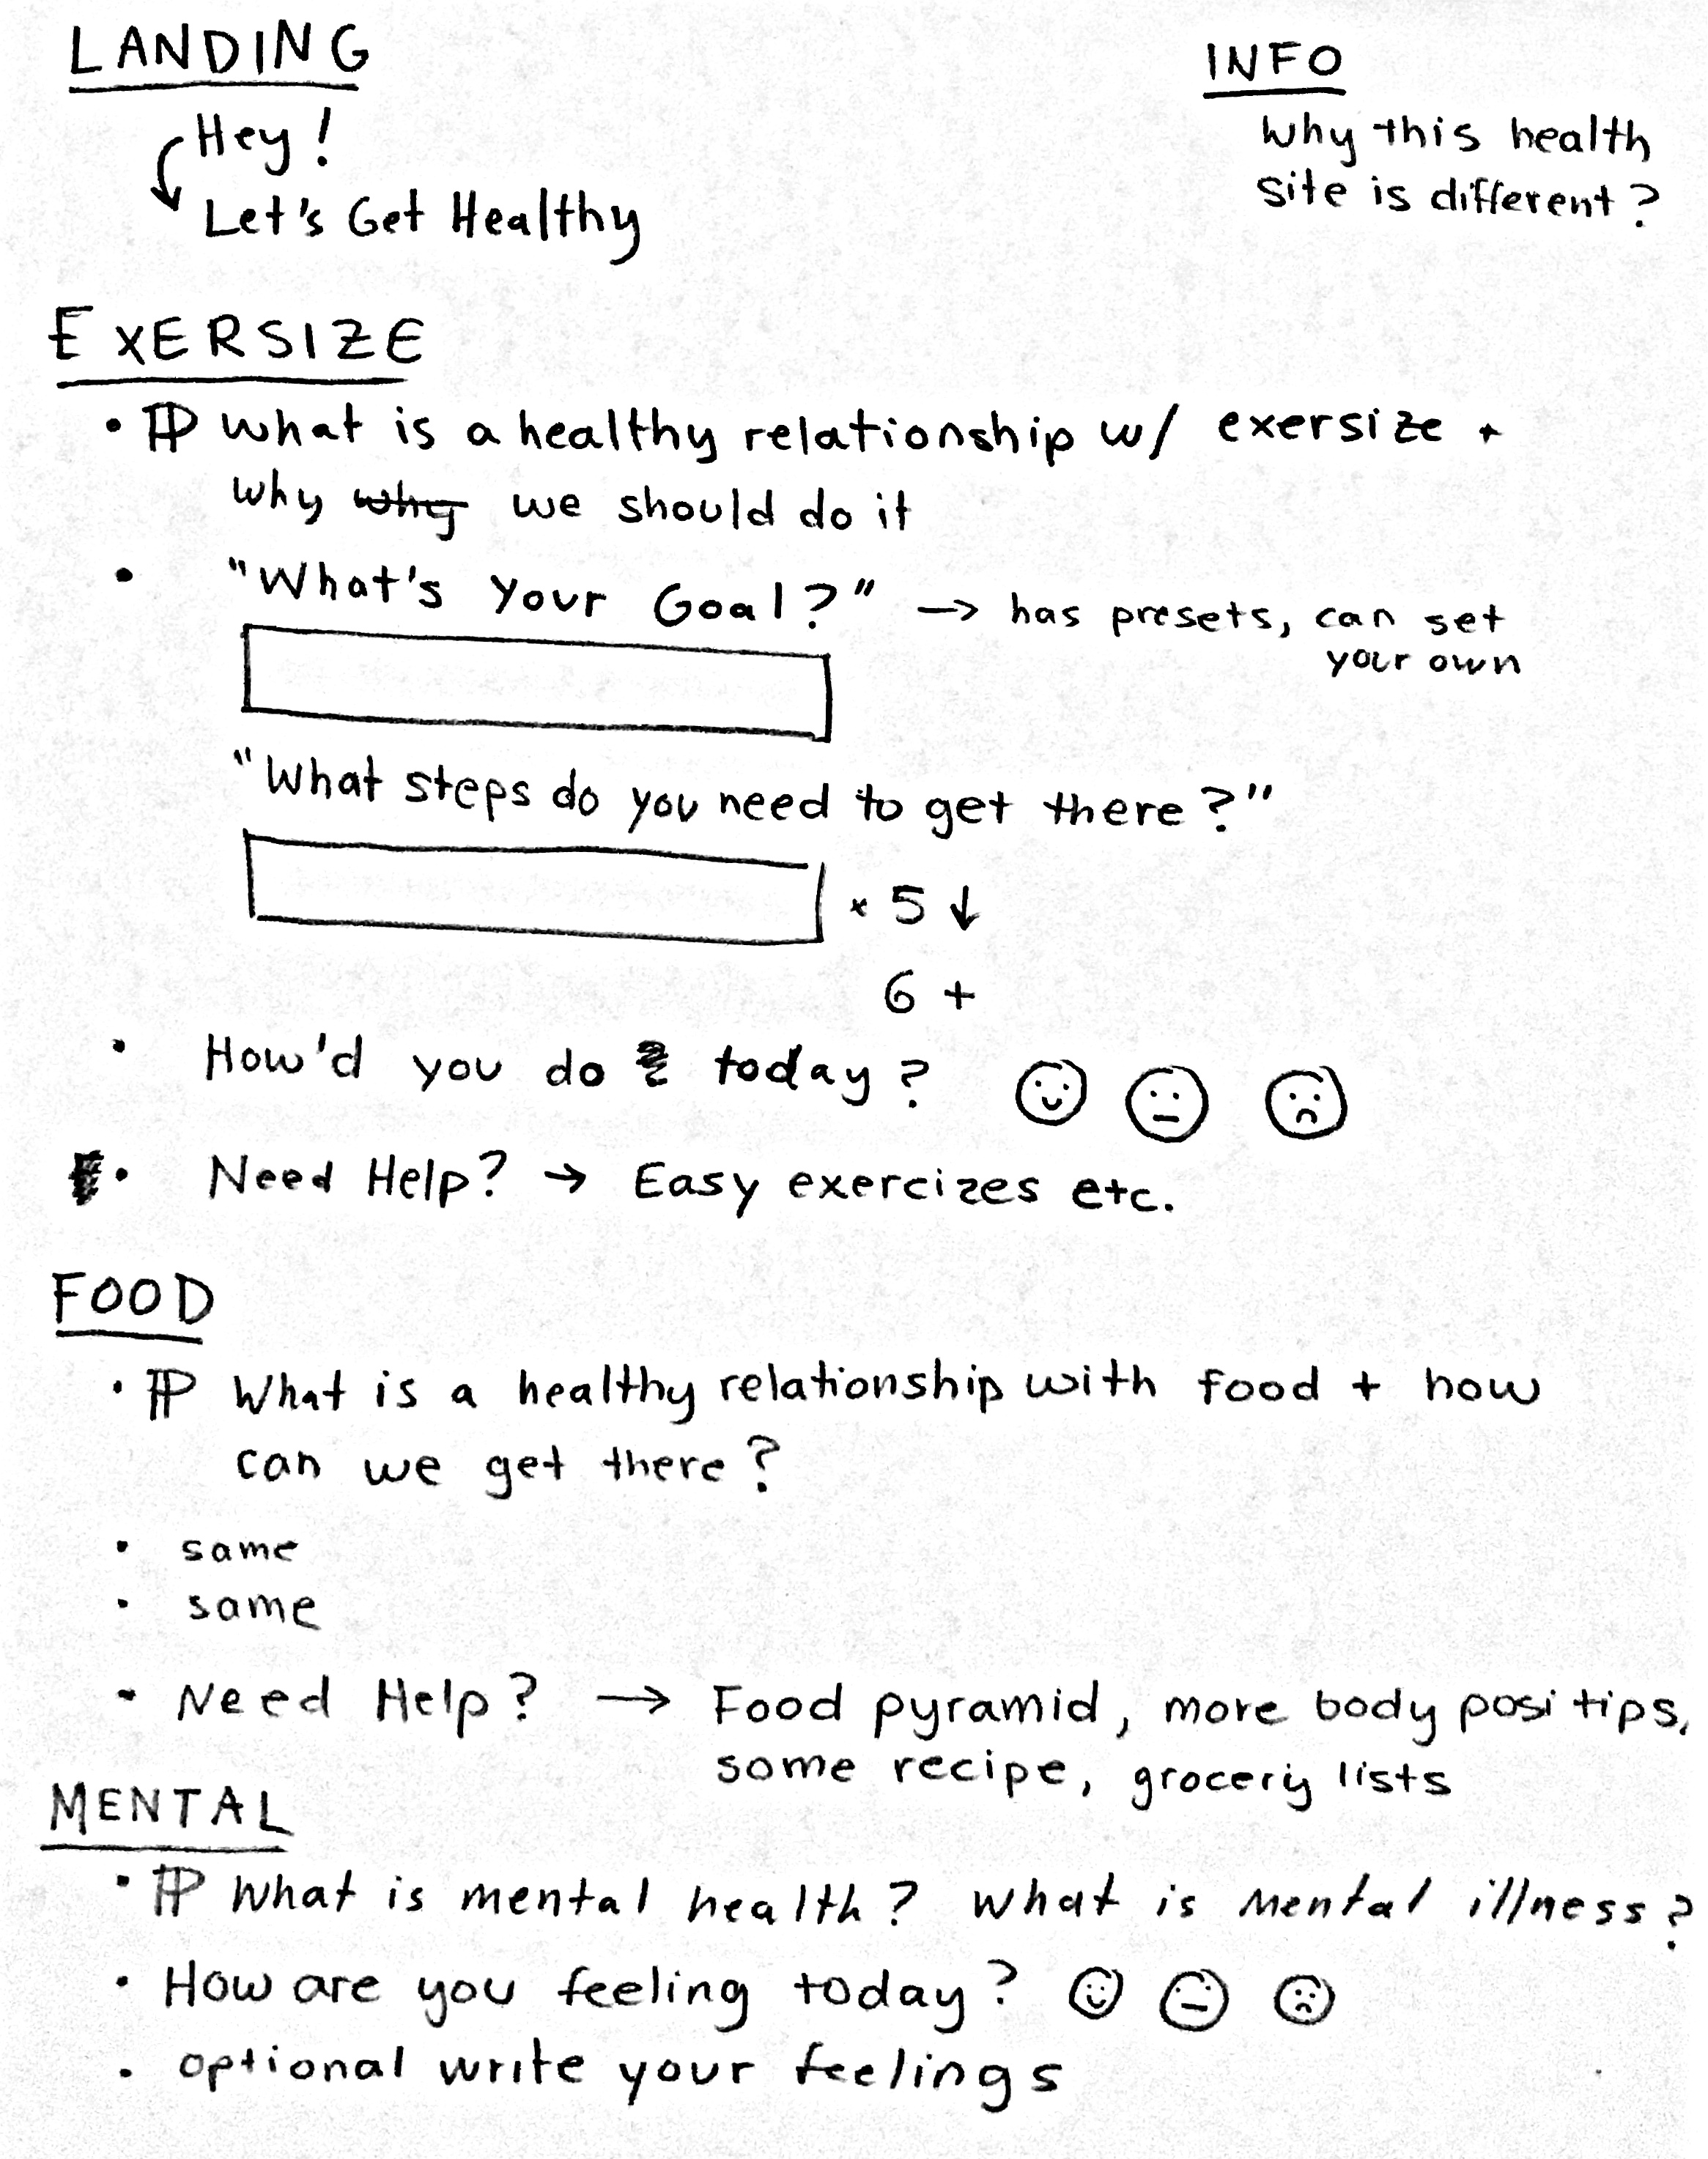 LANDING
Hey!
Let's Get Healthy
INFO
Why this health
site is different?
EXERSIZE
• ¶ What is a healthy relationship w/ exersize +
why why we should do it
• "What's Your Goal?" → has presets, can set
your own
"What steps do you need to get there?"
× 5 ↓
6 +
• How'd you do today?
• Need Help? → Easy exercizes etc.
FOOD
• ¶ What is a healthy relationship with food + how
can we get there?
• same
• same
• Need Help? → Food pyramid, more body posi tips,
some recipe, grocery lists
MENTAL
• ¶ What is mental health? What is mental illness?
• How are you feeling today?
• optional write your feelings